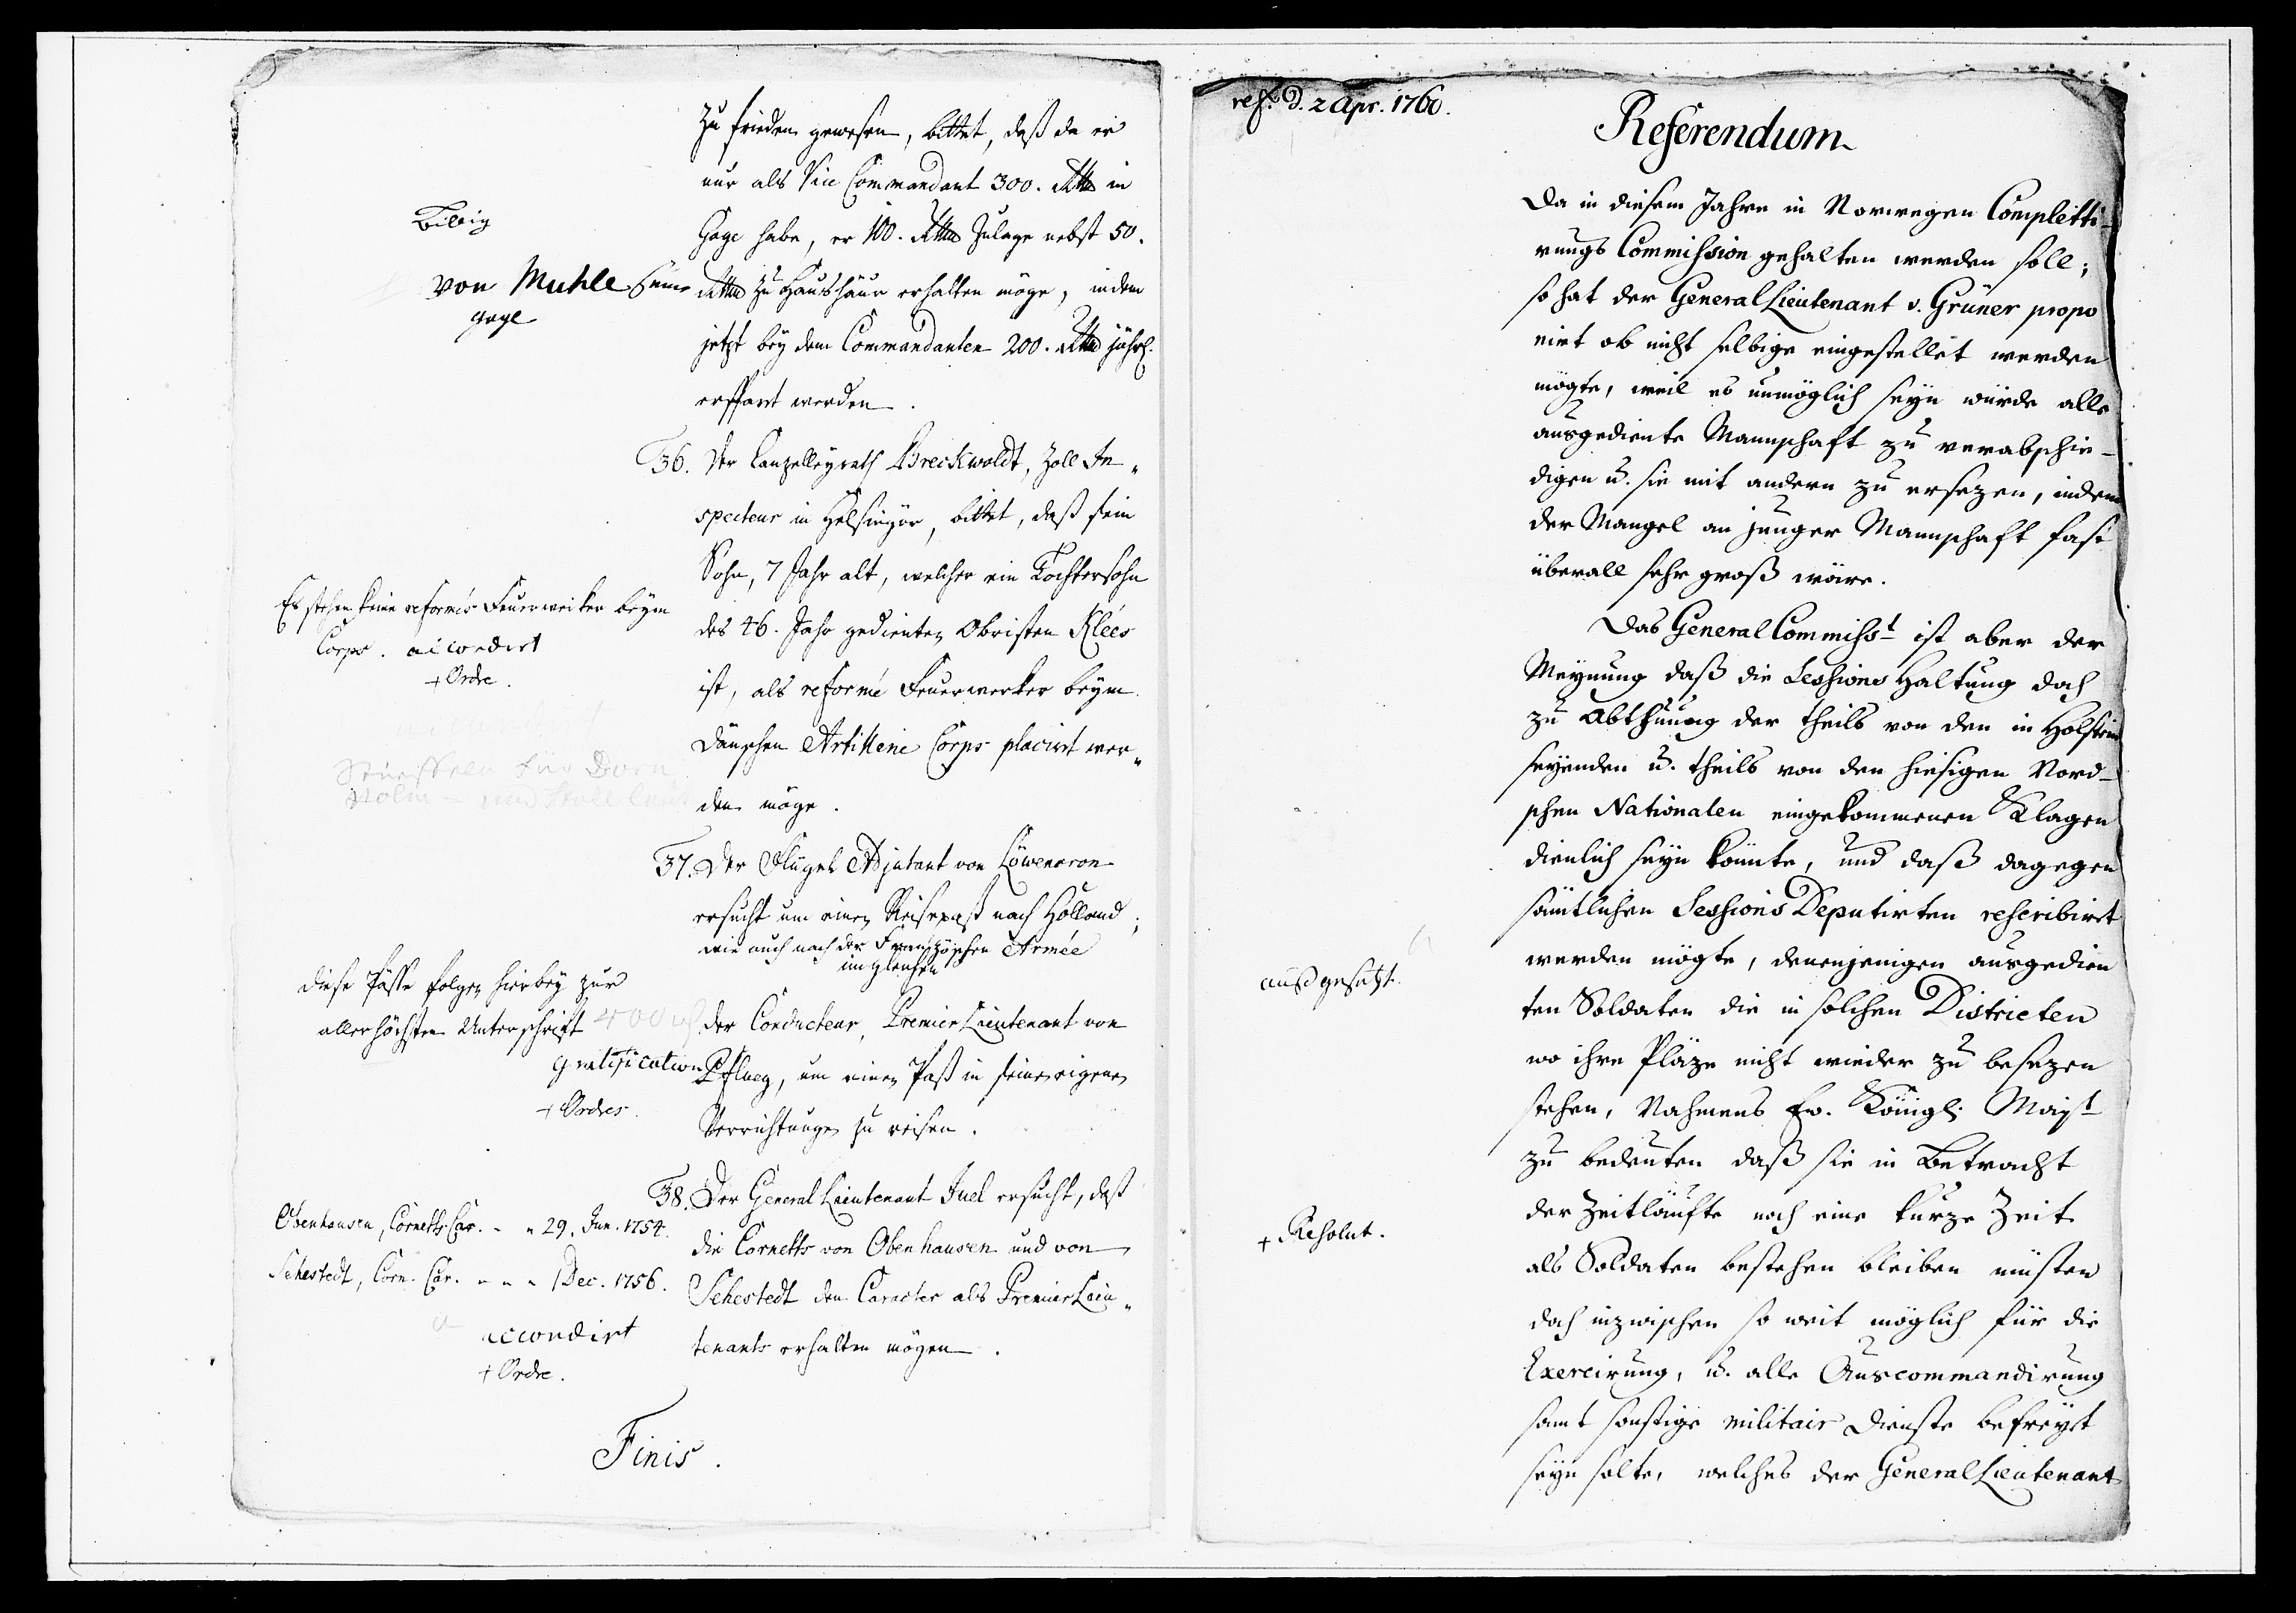 zu frieden gewesen, bittet, daß da er
nur als Vice Commandant 300. Rthlr in
Gage habe, er 100. Rthlr Zulage nebst 50.
Rthlr zu Haushäur erhalten möge, indem
jetzt bey dem Commandanten 200. Rthlr jährl.
erspart werden.
Billig
von Muhle seine
gage
36. Der Canzelleyrath Breckwoldt, Zoll In„
specteur in Helsingör, bittet, daß sein
Sohn, 7 Jahr alt, welcher ein Tochtersohn
des 46. Jahr gedienten Obristen Klées
ist, als reformé Feuerwerker beym
Dänschen Artillerie Corps placirt wer„
den möge.
Es stehen keine reformés Feuerwerker beym
Corps. accordirt
+ Ordre.
37. Der Flügel Adjutant von Löwenoron
ersucht um einen Reisepaß nach Holland;
wie auch nach der Französchen Armée
imgleichen
der Conducteur, Premier Lieutenant von
Pflueg, um einen Paß in seinen eigenen
Verrichtungen zu reisen.
diese Pässe folgen hierbey zur
allerhöchsten Unterschrift 400
gratification
+ Ordres.
38. Der General Lieutenant Juel ersucht, daß
die Cornetts von Obenhausen und von
Sehestedt den Caracter als Premier Lieu„
tenants erhalten mögen.
Obenhausen, Cornetts Car. - - 29. Jun. 1754.
Sehestedt, Corn. Car. - - - 1 Dec. 1756.
accordirt
+ Ordre.
Finis.
res. d. 2 Apr. 1760.
Referendum
Da in diesem Jahre in Norwegen Completti-
rungs Commission gehalten werden soll;
so hat der General Lieutenant v. Grüner propo
nirt ob nicht selbige eingestellet werden
mögte, weil es unmöglich seyn würde alle
ausgediente Mannschaft zu verabschie-
digen u. sie mit andern zu ersezen, indem
der Mangel an junger Mannschaft fast
überall sehr groß wäre.
Das General Commisst ist aber der
Meynung daß die Sessions Haltung doch
zu Abthuung der theils von den in Holstein
seyenden u. theils von den hiesigen Nord-
schen Nationalen eingekommenen Klagen
dienlich seyn könnte, und daß dagegen
sämtlichen Sessions Deputirten rescribiret
werden mögte, denenjenigen ausgedien
ten Soldaten die in solchen Districten
wo ihre Pläze nicht wieder zu besezen
stehen, Nahmens Ew. Königl. Mayst
zu bedeuten daß sie in Betracht
der Zeitläufte noch eine kurze Zeit
als Soldaten bestehen bleiben müsten
doch inzwischen so weit möglich für die
Exercirung, u. alle Auscommandirung
samt sonstige militair Dienste befreyet
seyn solte, welches der General Lieutenant
ausgesetzt.
+ Resolut.